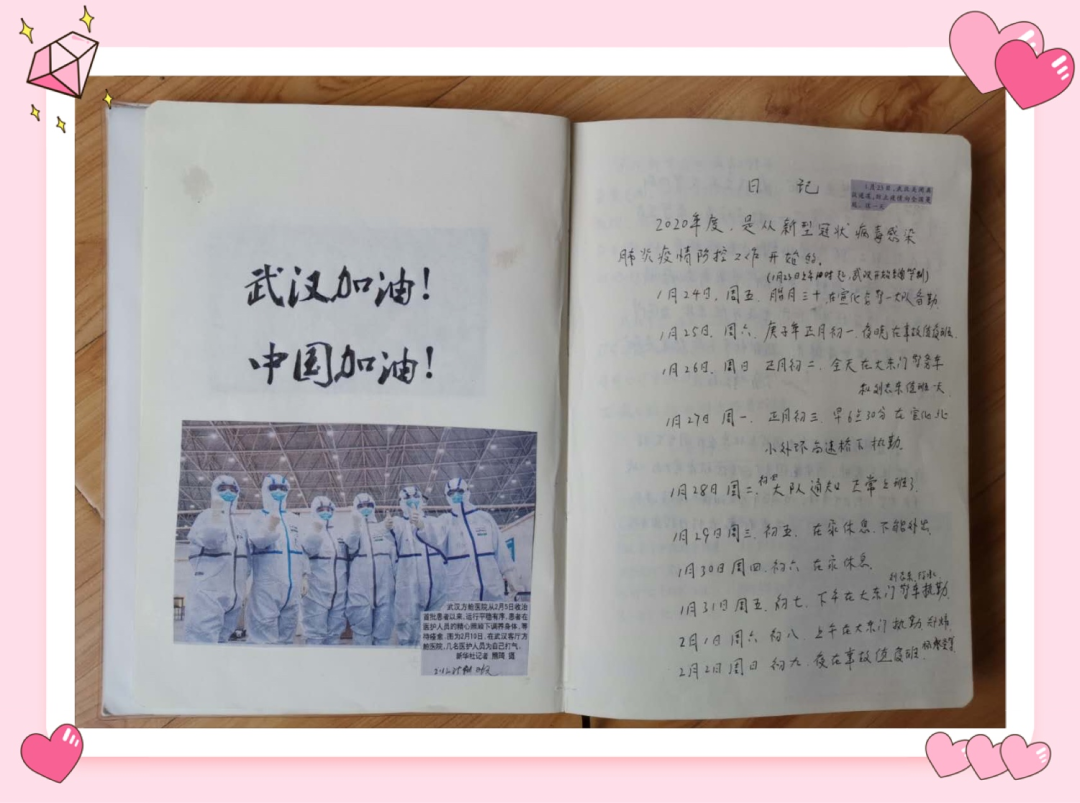 武汉加油!
中国加油!
武汉方舱医院从2月5日收治
首批患者以来,运行平稳有序,患者在
医护人员的精心照顾下调养身体,等
待痊愈。图为2月10日,在武汉客厅方
舱医院,几名医护人员为自己打气。
新华社记者 熊琦 摄
日 记
1月23日,武汉关闭离
2020年度,是从新型冠状病毒感染
肺炎疫情防控工作开始的。
1月24日、周五、腊月三十、在宣化
1月25日、周六、庚子年正月初一、夜晚在事故值夜班
1月26日、周日 正月初二、全天在大东门警车
值班一天
1月27日 周一、正月初三、早6点30分在宣化北
外环高速桥下执勤
1月28日 周二、初四 大队通知 正常上班了
1月29日 周三、初五、在家休息、不能外出
1月30日 周四、初六 在家休息
1月31日 周五、初七、下午在大东门警车执勤
2月1日 周六 初八、上午在大东门执勤
2月2日 周日 初九、夜在事故值夜班